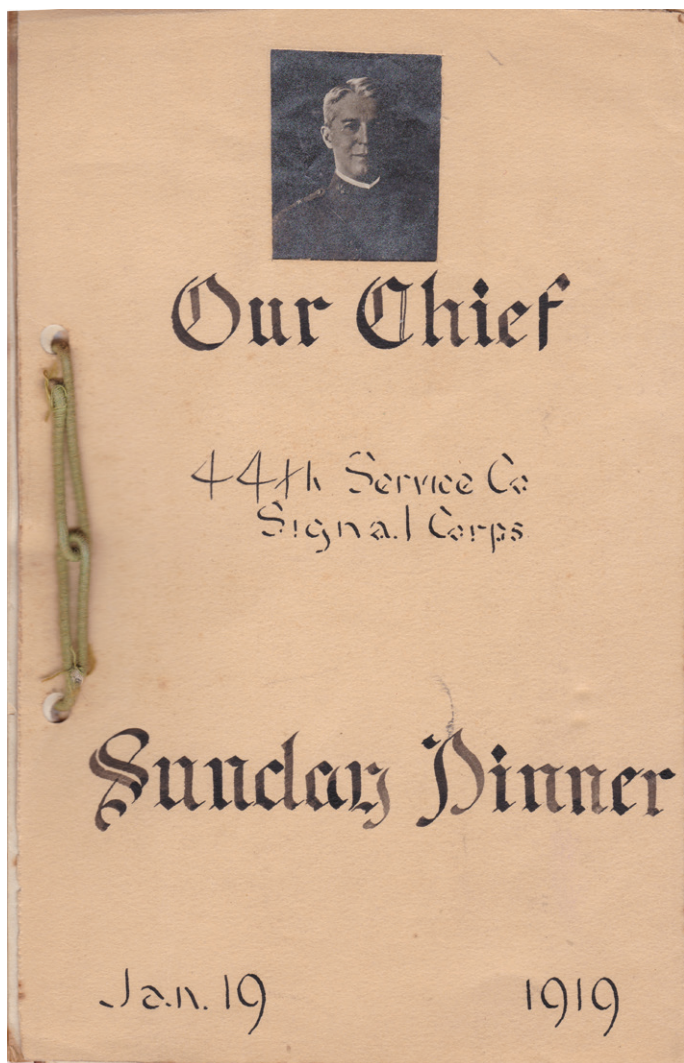 Our Chief
44th Service Co
Signal Corps
Sunday Dinner
Jan. 19 1919